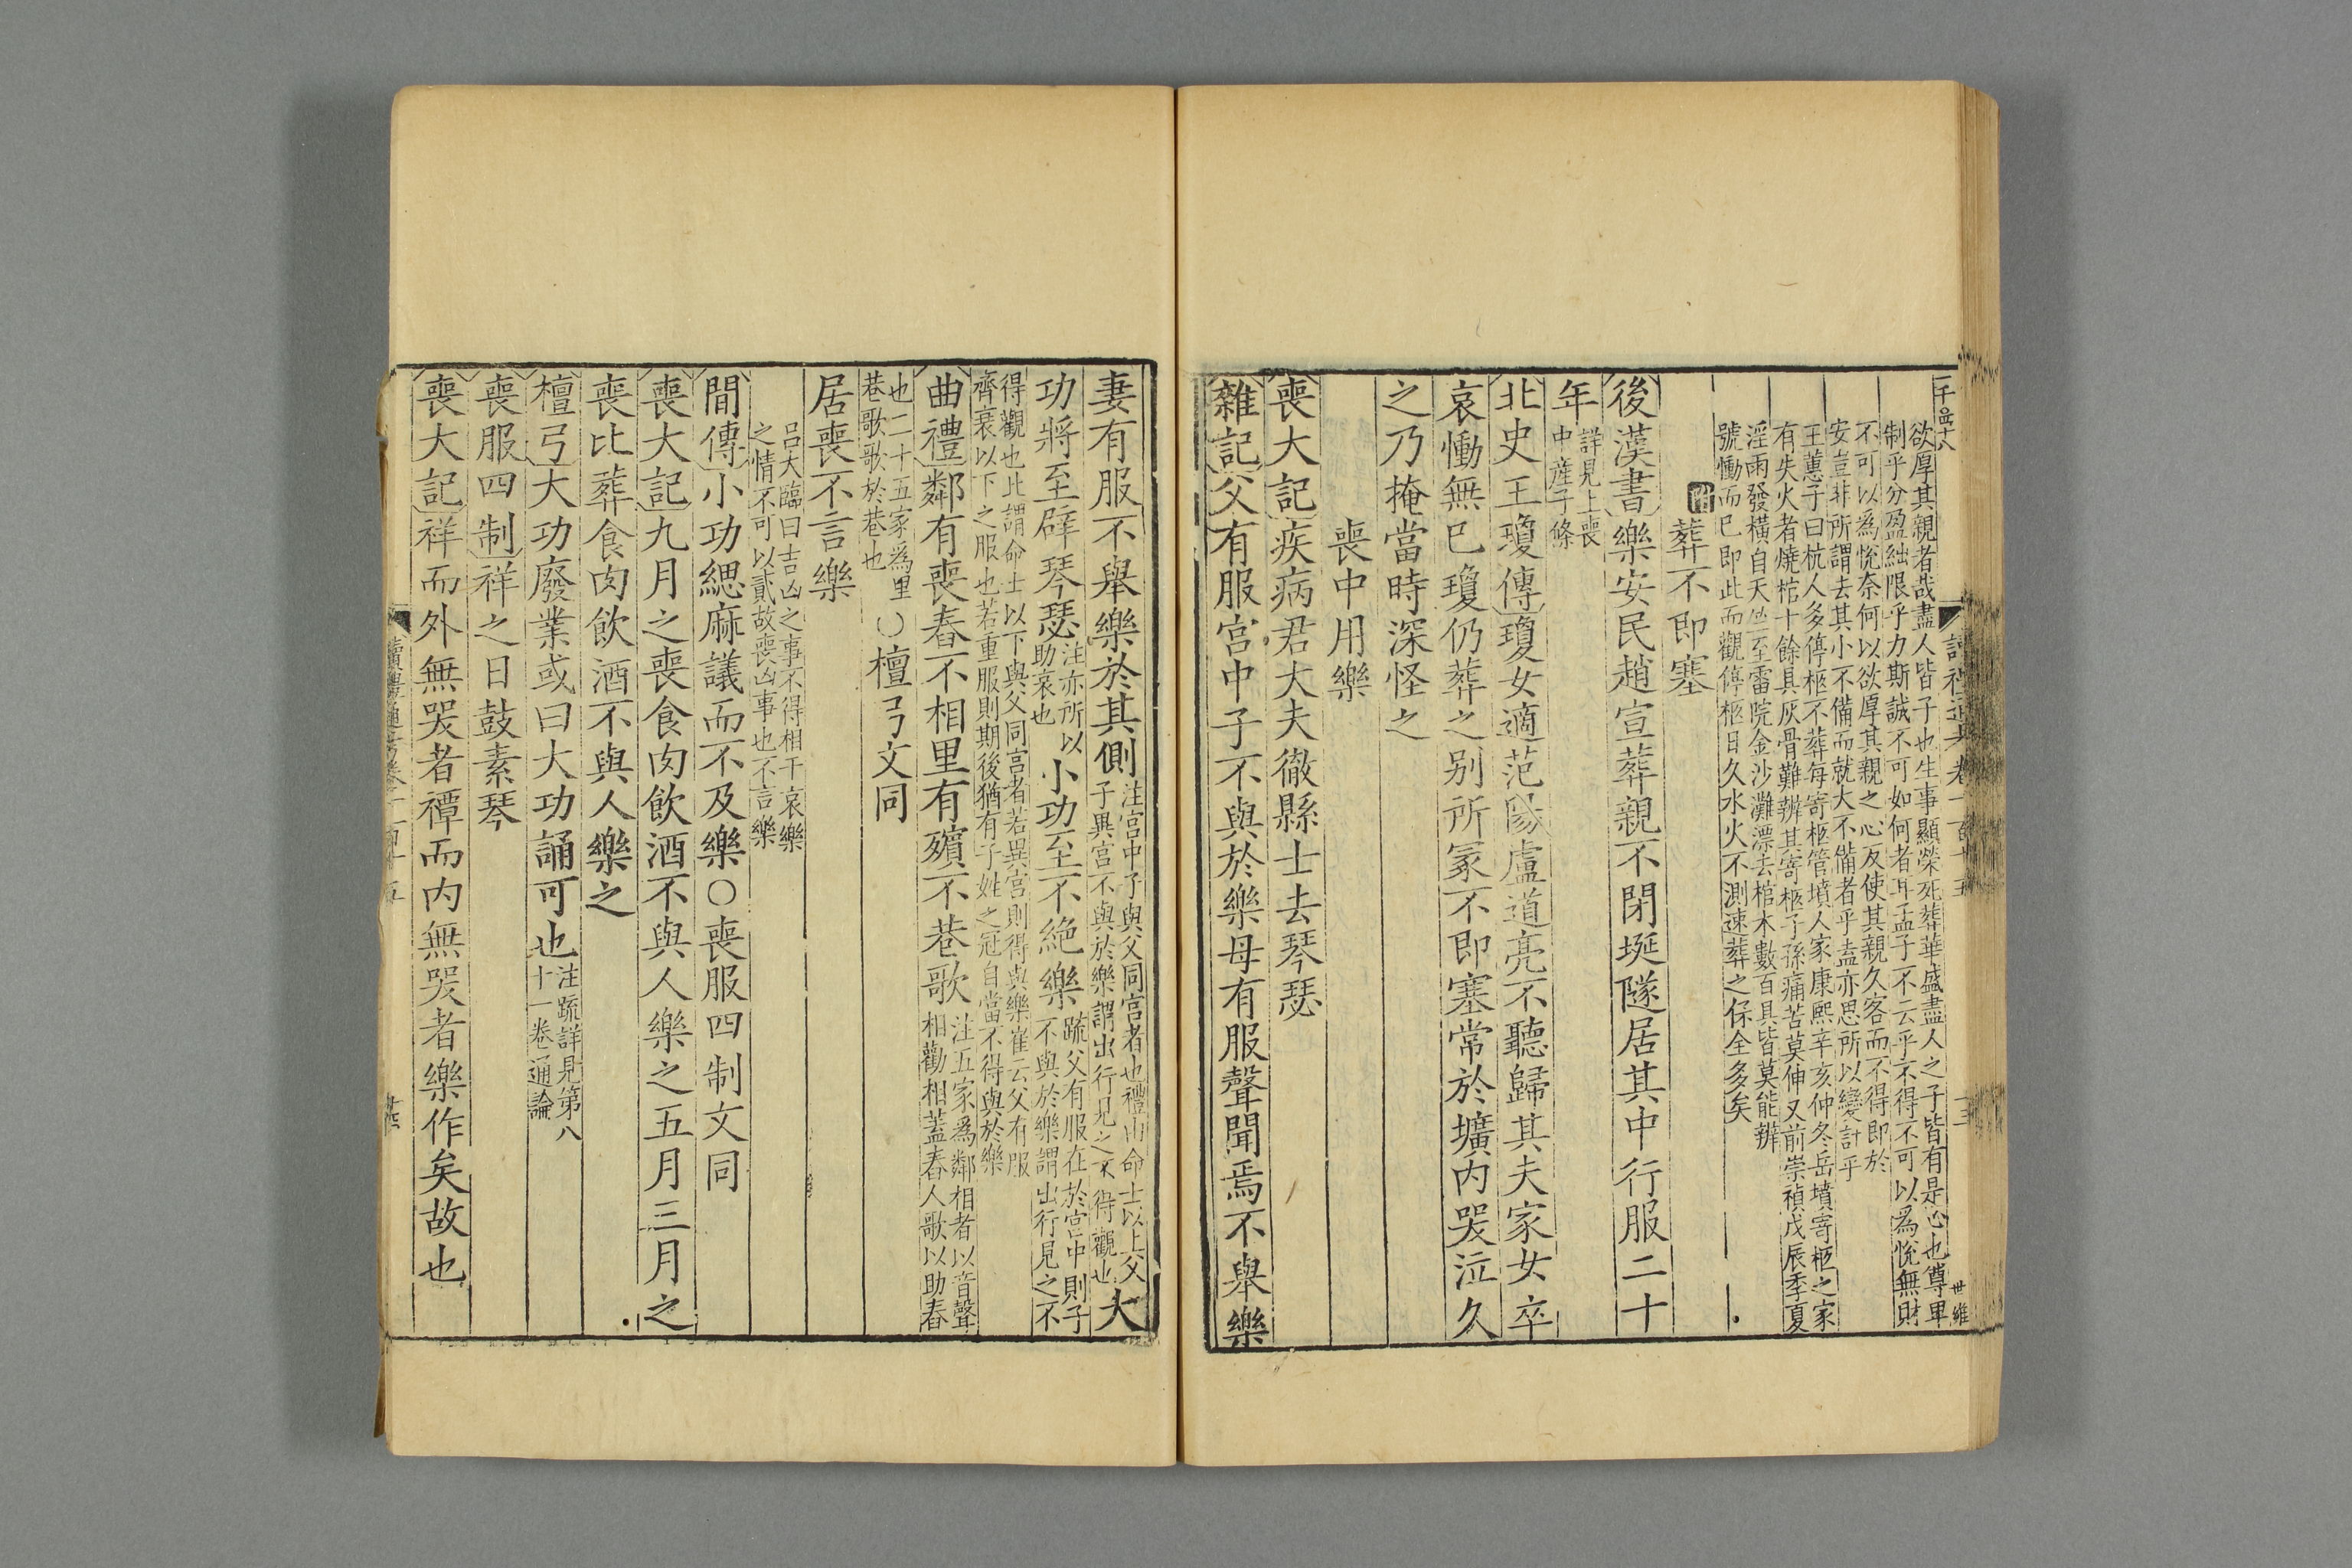 欲厚其親者哉盡人皆子也生事顯榮死葬華盛盡人之子皆有是心也尊卑
制乎分盈絀限乎力斯誠不可如何者耳孟子不云乎不得不可以為恱無財
不可以為恱奈何以欲厚其親之心反使其親久客而不得即於
安豈非所謂去其小不備而就大不備者乎盍亦思所以變計乎
王蕙子曰杭人多停柩不葬每寄柩管墳人家康熙辛亥仲冬岳墳寄柩之家
有失火者燒棺十餘具灰骨難辨其寄柩子孫痛苦莫伸又前崇禎戊辰季夏
淫雨發橫自天竺至雷院金沙灘漂去棺木數百具皆莫能辨
號慟而已即此而觀停柩日久水火不測速葬之保全多矣
附 葬不即塞
後漢書樂安民趙宣葬親不閉埏隧居其中行服二十
年詳見上喪
中産子條
北史王瓊傳瓊女適范陽盧道亮不聽歸其夫家女卒
哀慟無已瓊仍葬之别所冢不即塞常於壙内哭泣久
之乃掩當時深怪之
喪中用樂
喪大記疾病君大夫徹縣士去琴瑟
雜記父有服宫中子不與於樂母有服聲聞焉不舉樂
妻有服不舉樂於其側注宫中子與父同宫者也禮由命士以上父
子異宫不與於樂謂出行見之不得觀也大
功將至辟琴瑟注亦所以
助哀也小功至不絶樂疏父有服在於宫中則子
不與於樂謂出行見之不
得觀也此謂命士以下與父同宫者若異宫則得與樂崔云父有服
齊衰以下之服也若重服則期後猶有子姓之冠自當不得與於樂
曲禮鄰有喪舂不相里有殯不巷歌注五家為鄰相者以音聲
相勸相蓋舂人歌以助舂
也二十五家為里
巷歌歌於巷也○檀弓文同
居喪不言樂
吕大臨曰吉凶之事不得相干哀樂
之情不可以貳故喪凶事也不言樂
間傳小功緦麻議而不及樂○喪服四制文同
喪大記九月之喪食肉飲酒不與人樂之五月三月之
喪比葬食肉飲酒不與人樂之
檀弓大功廢業或曰大功誦可也注疏詳見第八
十一卷通論
喪服四制祥之日鼓素琴
喪大記祥而外無哭者禫而内無哭者樂作矣故也